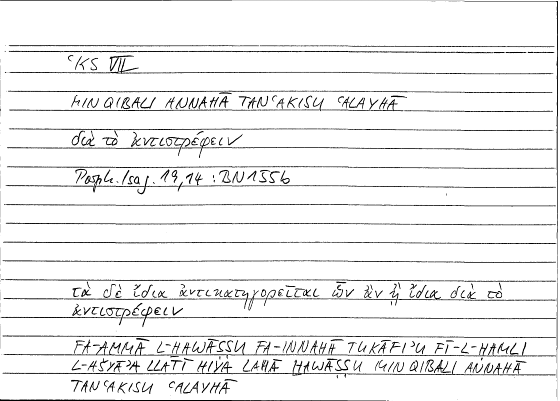 ʿKS VII
MIN QIBALI ANNAHĀ TANʿAKISU ʿALAYHĀ
διὰ τὸ ἀντιστρέφειν
Porph. Isag. 19,14 : BN 155b
τὰ δὲ ἴδια ἀντικατηγορεῖται ὧν ἂν ᾖ ἴδια διὰ τὸ
ἀντιστρέφειν
FA-AMMĀ L-ḪAWĀṢṢU FA-INNAHĀ TUKĀFIʾU FĪ-L-ḤAMLI
L-AŠYĀʾA LLATĪ HIYA LAHĀ ḪAWĀṢṢU MIN QIBALI ANNAHĀ
TANʿAKISU ʿALAYHĀ